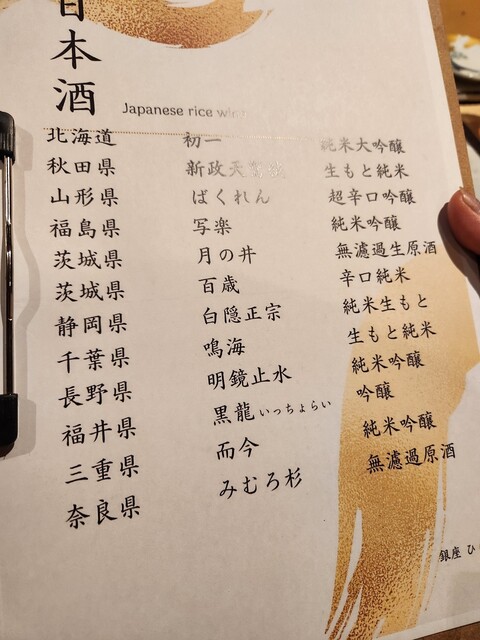 日本酒
Japanese rice
北海道 初一 純米大吟醸
秋田県 新政 生もと純米
山形県 ばくれん 超辛口吟醸
福島県 写楽 純米吟醸
茨城県 月の井 無濾過生原酒
茨城県 百歳 辛口純米
静岡県 白隠正宗 純米生もと
千葉県 鳴海 生もと純米
長野県 明鏡止水 純米吟醸
福井県 黒龍いっちょらい 吟醸
三重県 而今 純米吟醸
奈良県 みむろ杉 無濾過原酒
銀座 ひ